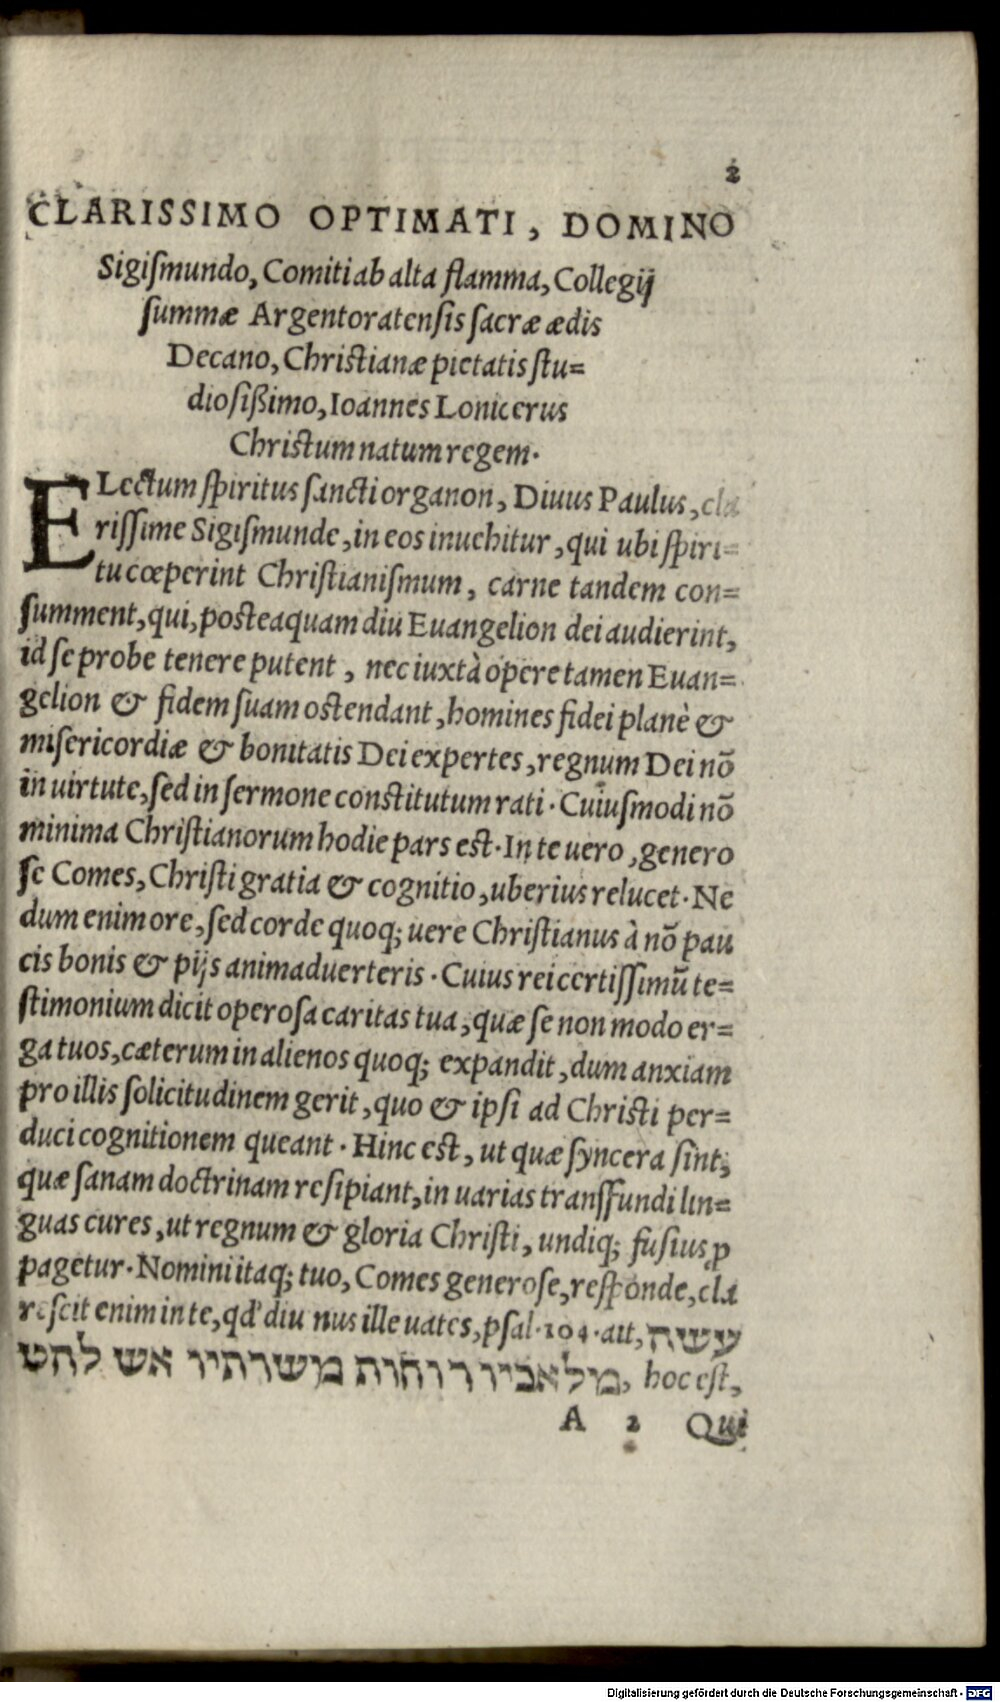 2
CLARISSIMO OPTIMATI, DOMINO
Sigiſmundo, Comiti ab alta flamma, Collegij
ſummæ Argentoratenſis ſacræ ædis
Decano, Chriſtianæ pietatis ſtu=
dioſißimo, Ioannes Lonicerus
Chriſtum natum regem.
ELectum ſpiritus ſancti organon, Diuus Paulus, cla
riſſime Sigiſmunde, in eos inuehitur, qui ubi ſpiri=
tu cœperint Chriſtianiſmum, carne tandem con=
ſumment, qui, poſteaquam diu Euangelion dei audierint,
id ſe probe tenere putent, nec iuxtà opere tamen Euan=
gelion & fidem ſuam oſtendant, homines fidei planè &
miſericordiæ & bonitatis Dei expertes, regnum Dei nō
in uirtute, ſed in ſermone conſtitutum rati. Cuiuſmodi nō
minima Chriſtianorum hodie pars eſt. In te uero, genero
ſe Comes, Chriſti gratia & cognitio, uberius relucet. Ne
dum enim ore, ſed corde quoq; uere Chriſtianus à nō pau
cis bonis & pijs animaduerteris. Cuius rei certiſſimū te=
ſtimonium dicit operoſa caritas tua, quæ ſe non modo er=
ga tuos, cæterum in alienos quoq; expandit, dum anxiam
pro illis ſolicitudinem gerit, quo & ipſi ad Chriſti per=
duci cognitionem queant. Hinc eſt, ut quæ ſyncera ſint,
quæ ſanam doctrinam reſipiant, in uarias transfundi lin=
guas cures, ut regnum & gloria Chriſti, undiq; fuſius ꝓ
pagetur. Nomini itaq; tuo, Comes generoſe, reſponde, cla
reſcit enim in te, qd' diu nus ille uates, pſal. 104. ait, עשיה
מלאכיו רוחות משרתיו אש להט, hoc eſt,
A 2 Qui
Digitalisierung gefördert durch die Deutsche Forschungsgemeinschaft - DFG